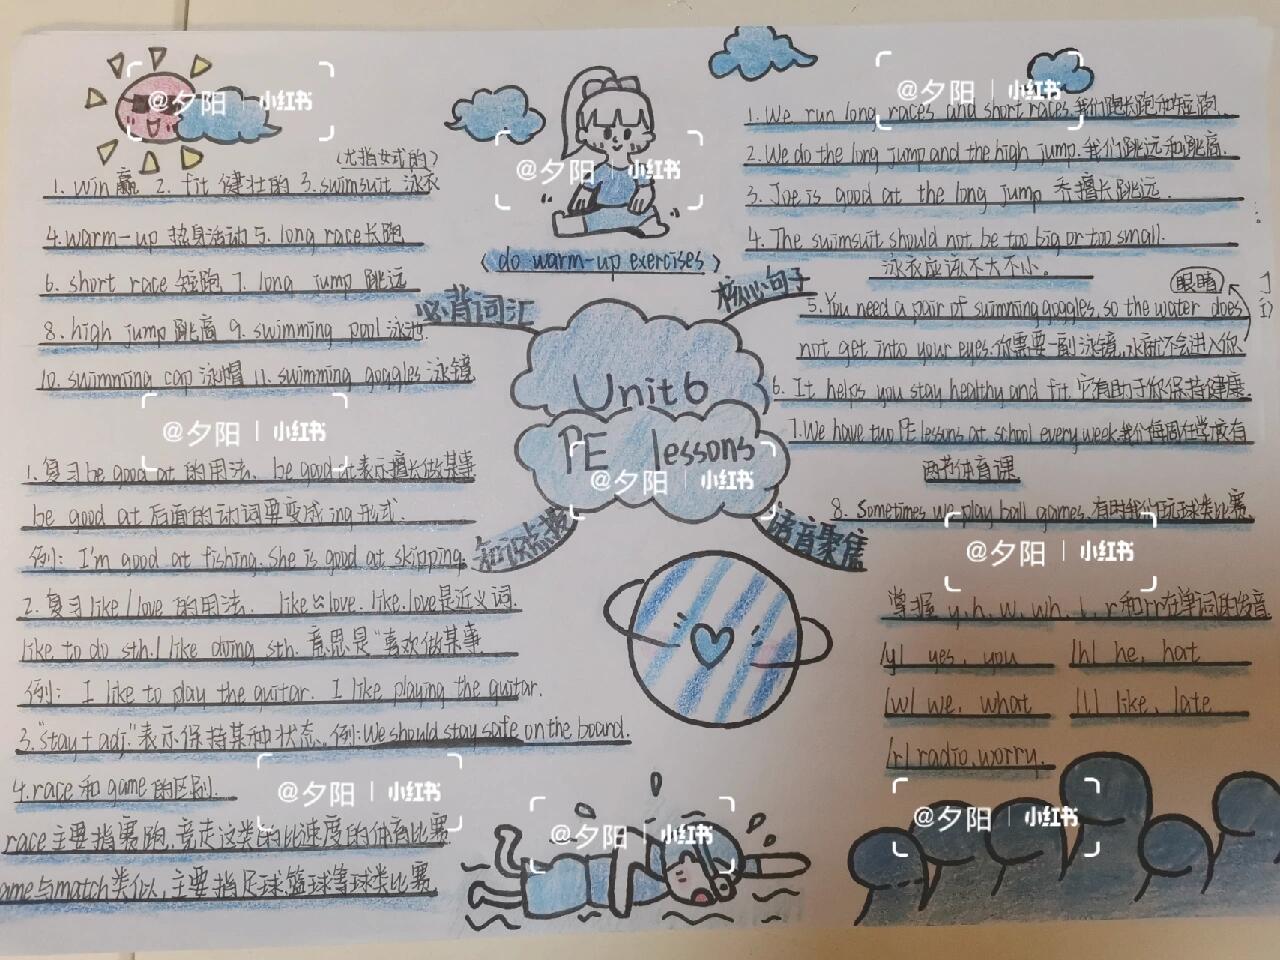 (尤指女式的)
1. win 赢 2. fit 健壮的 3. swimsuit 泳衣
4. warm-up 热身活动 5. long race 长跑
6. short race 短跑 7. long jump 跳远
8. high jump 跳高 9. swimming pool 泳池
10. swimming cap 泳帽 11. swimming goggles 泳镜
(do warm-up exercises)
必背词汇
核心句子
Unit 6
PE lessons
知识点拨
语音聚焦
1. We run long races and short races 我们跑长跑和短跑.
2. We do the long jump and the high jump. 我们跳远和跳高.
3. Joe is good at the long jump 乔擅长跳远.
4. The swimsuit should not be too big or too small.
泳衣应该不大不小。
眼睛
5. You need a pair of swimming goggles, so the water does
not get into your eyes. 你需要一副泳镜, 水就不会进入你
6. It helps you stay healthy and fit. 它有助于你保持健康
7. We have two PE lessons at school every week 我们每周在学校有
两节体育课
8. Sometimes we play ball games. 有时我们玩球类比赛.
1. 复习 be good at 的用法. be good at 表示擅长做某事
be good at 后面的动词要变成 ing 形式.
例: I'm good at fishing. She is good at skipping.
2. 复习 like / love 的用法. like 与 love. like. love 是近义词.
like to do sth. / like doing sth. 意思是"喜欢做某事
例: I like to play the guitar. I like playing the guitar.
3. "stay + adj." 表示保持某种状态. 例: We should stay safe on the board.
4. race 和 game 的区别.
race 主要指赛跑, 竞走这类的比速度的体育比赛
ame 与 match 类似, 主要指足球篮球等球类比赛
掌握 y. h. w. wh. l. r 和 rr 在单词的发音
/y/ yes, you /h/ he, hat
/w/ we, what /l/ like, late
/r/ radio, worry.
@夕阳 | 小红书
@夕阳 | 小红书
@夕阳 | 小红书
@夕阳 | 小红书
@夕阳 | 小红书
@夕阳 | 小红书
@夕阳 | 小红书
@夕阳 | 小红书
@夕阳 | 小红书